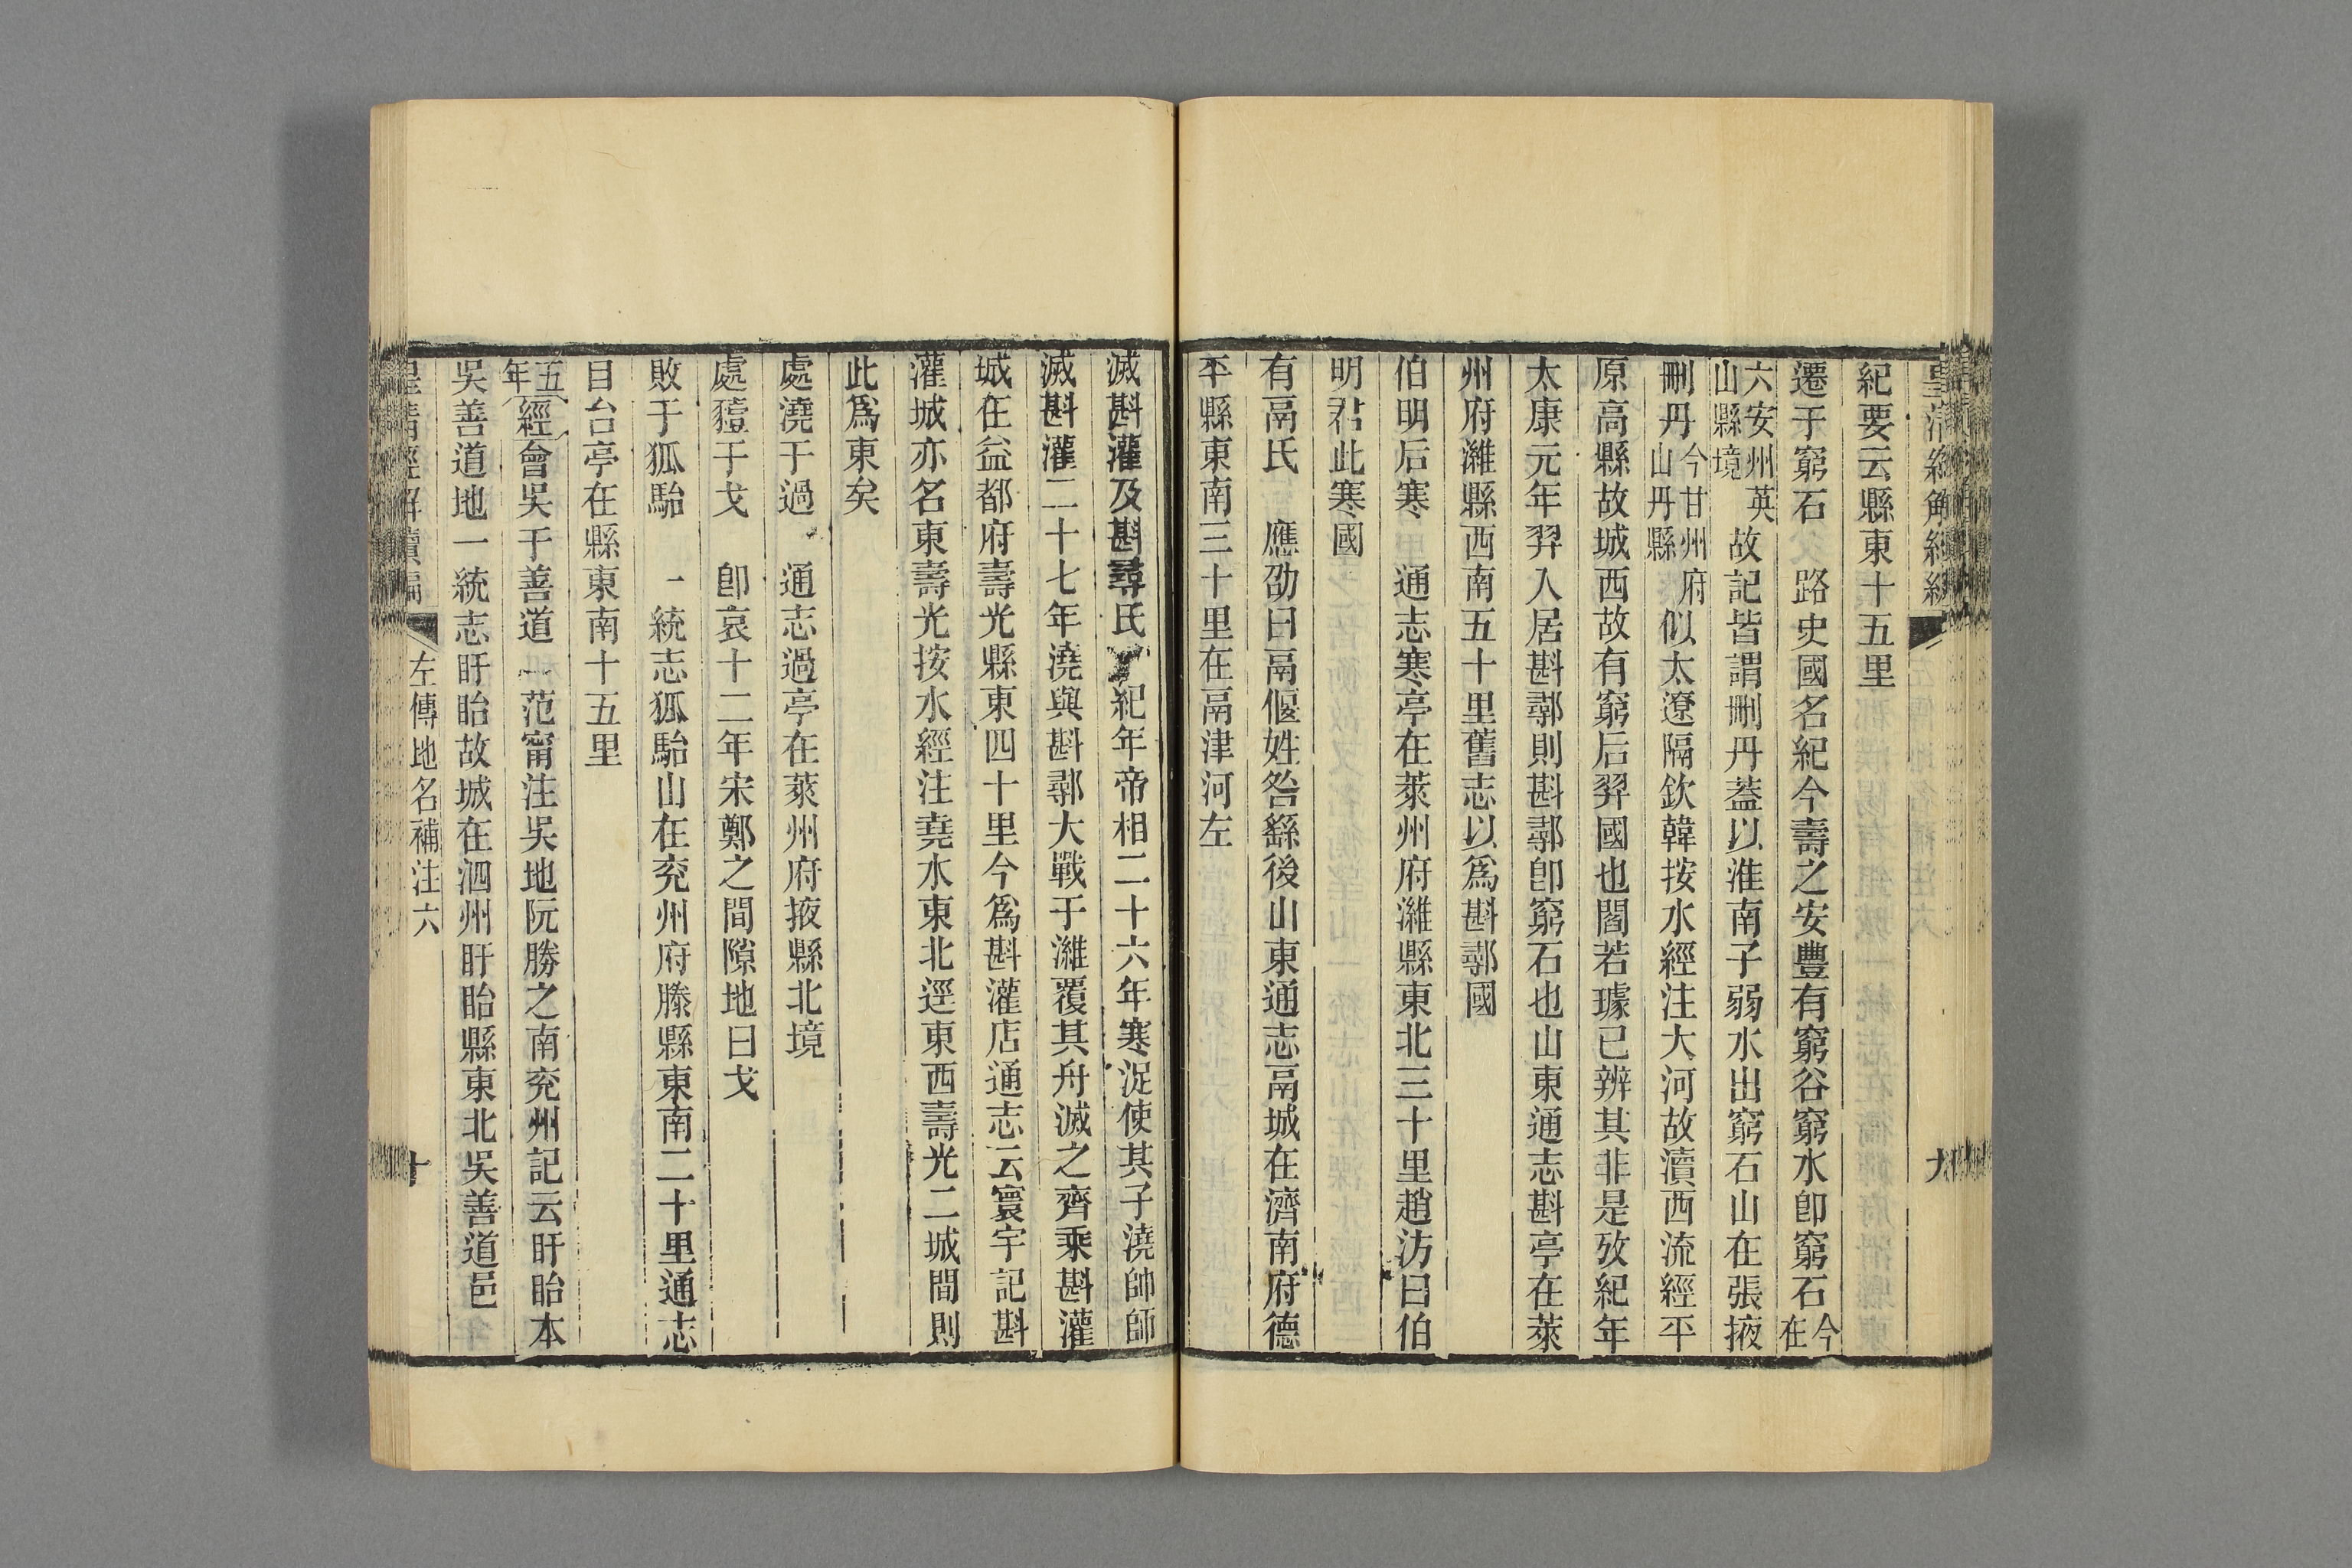 紀要云縣東十五里
遷于窮石　路史國名紀今壽之安豐有窮谷窮水卽窮石今在
六安州英山縣境故記皆謂刪丹蓋以淮南子弱水出窮石山在張掖
刪丹今甘州府山丹縣似太遼隔欽韓按水經注大河故瀆西流經平
原高縣故城西故有窮后羿國也閻若璩已辨其非是攷紀年
太康元年羿入居斟鄩則斟鄩卽窮石也山東通志斟亭在萊
州府濰縣西南五十里舊志以爲斟鄩國
伯明后寒　通志寒亭在萊州府濰縣東北三十里趙汸曰伯
明君此寒國
有鬲氏　應劭曰鬲偃姓咎繇後山東通志鬲城在濟南府德
平縣東南三十里在鬲津河左
滅斟灌及斟尋氏　紀年帝相二十六年寒浞使其子澆帥師
滅斟灌二十七年澆與斟鄩大戰于濰覆其舟滅之齊乘斟灌
城在益都府壽光縣東四十里今爲斟灌店通志云寰宇記斟
灌城亦名東壽光按水經注堯水東北逕東西壽光二城間則
此爲東矣
處澆于過　通志過亭在萊州府掖縣北境
處豷于戈　卽哀十二年宋鄭之間隙地曰戈
敗于狐駘　一統志狐駘山在兗州府滕縣東南二十里通志
目台亭在縣東南十五里
五年經會吳于善道　范甯注吳地阮勝之南兗州記云盱眙本
吳善道地一統志盱眙故城在泗州盱眙縣東北吳善道邑
皇淸經解續編　左傳地名補注六　十